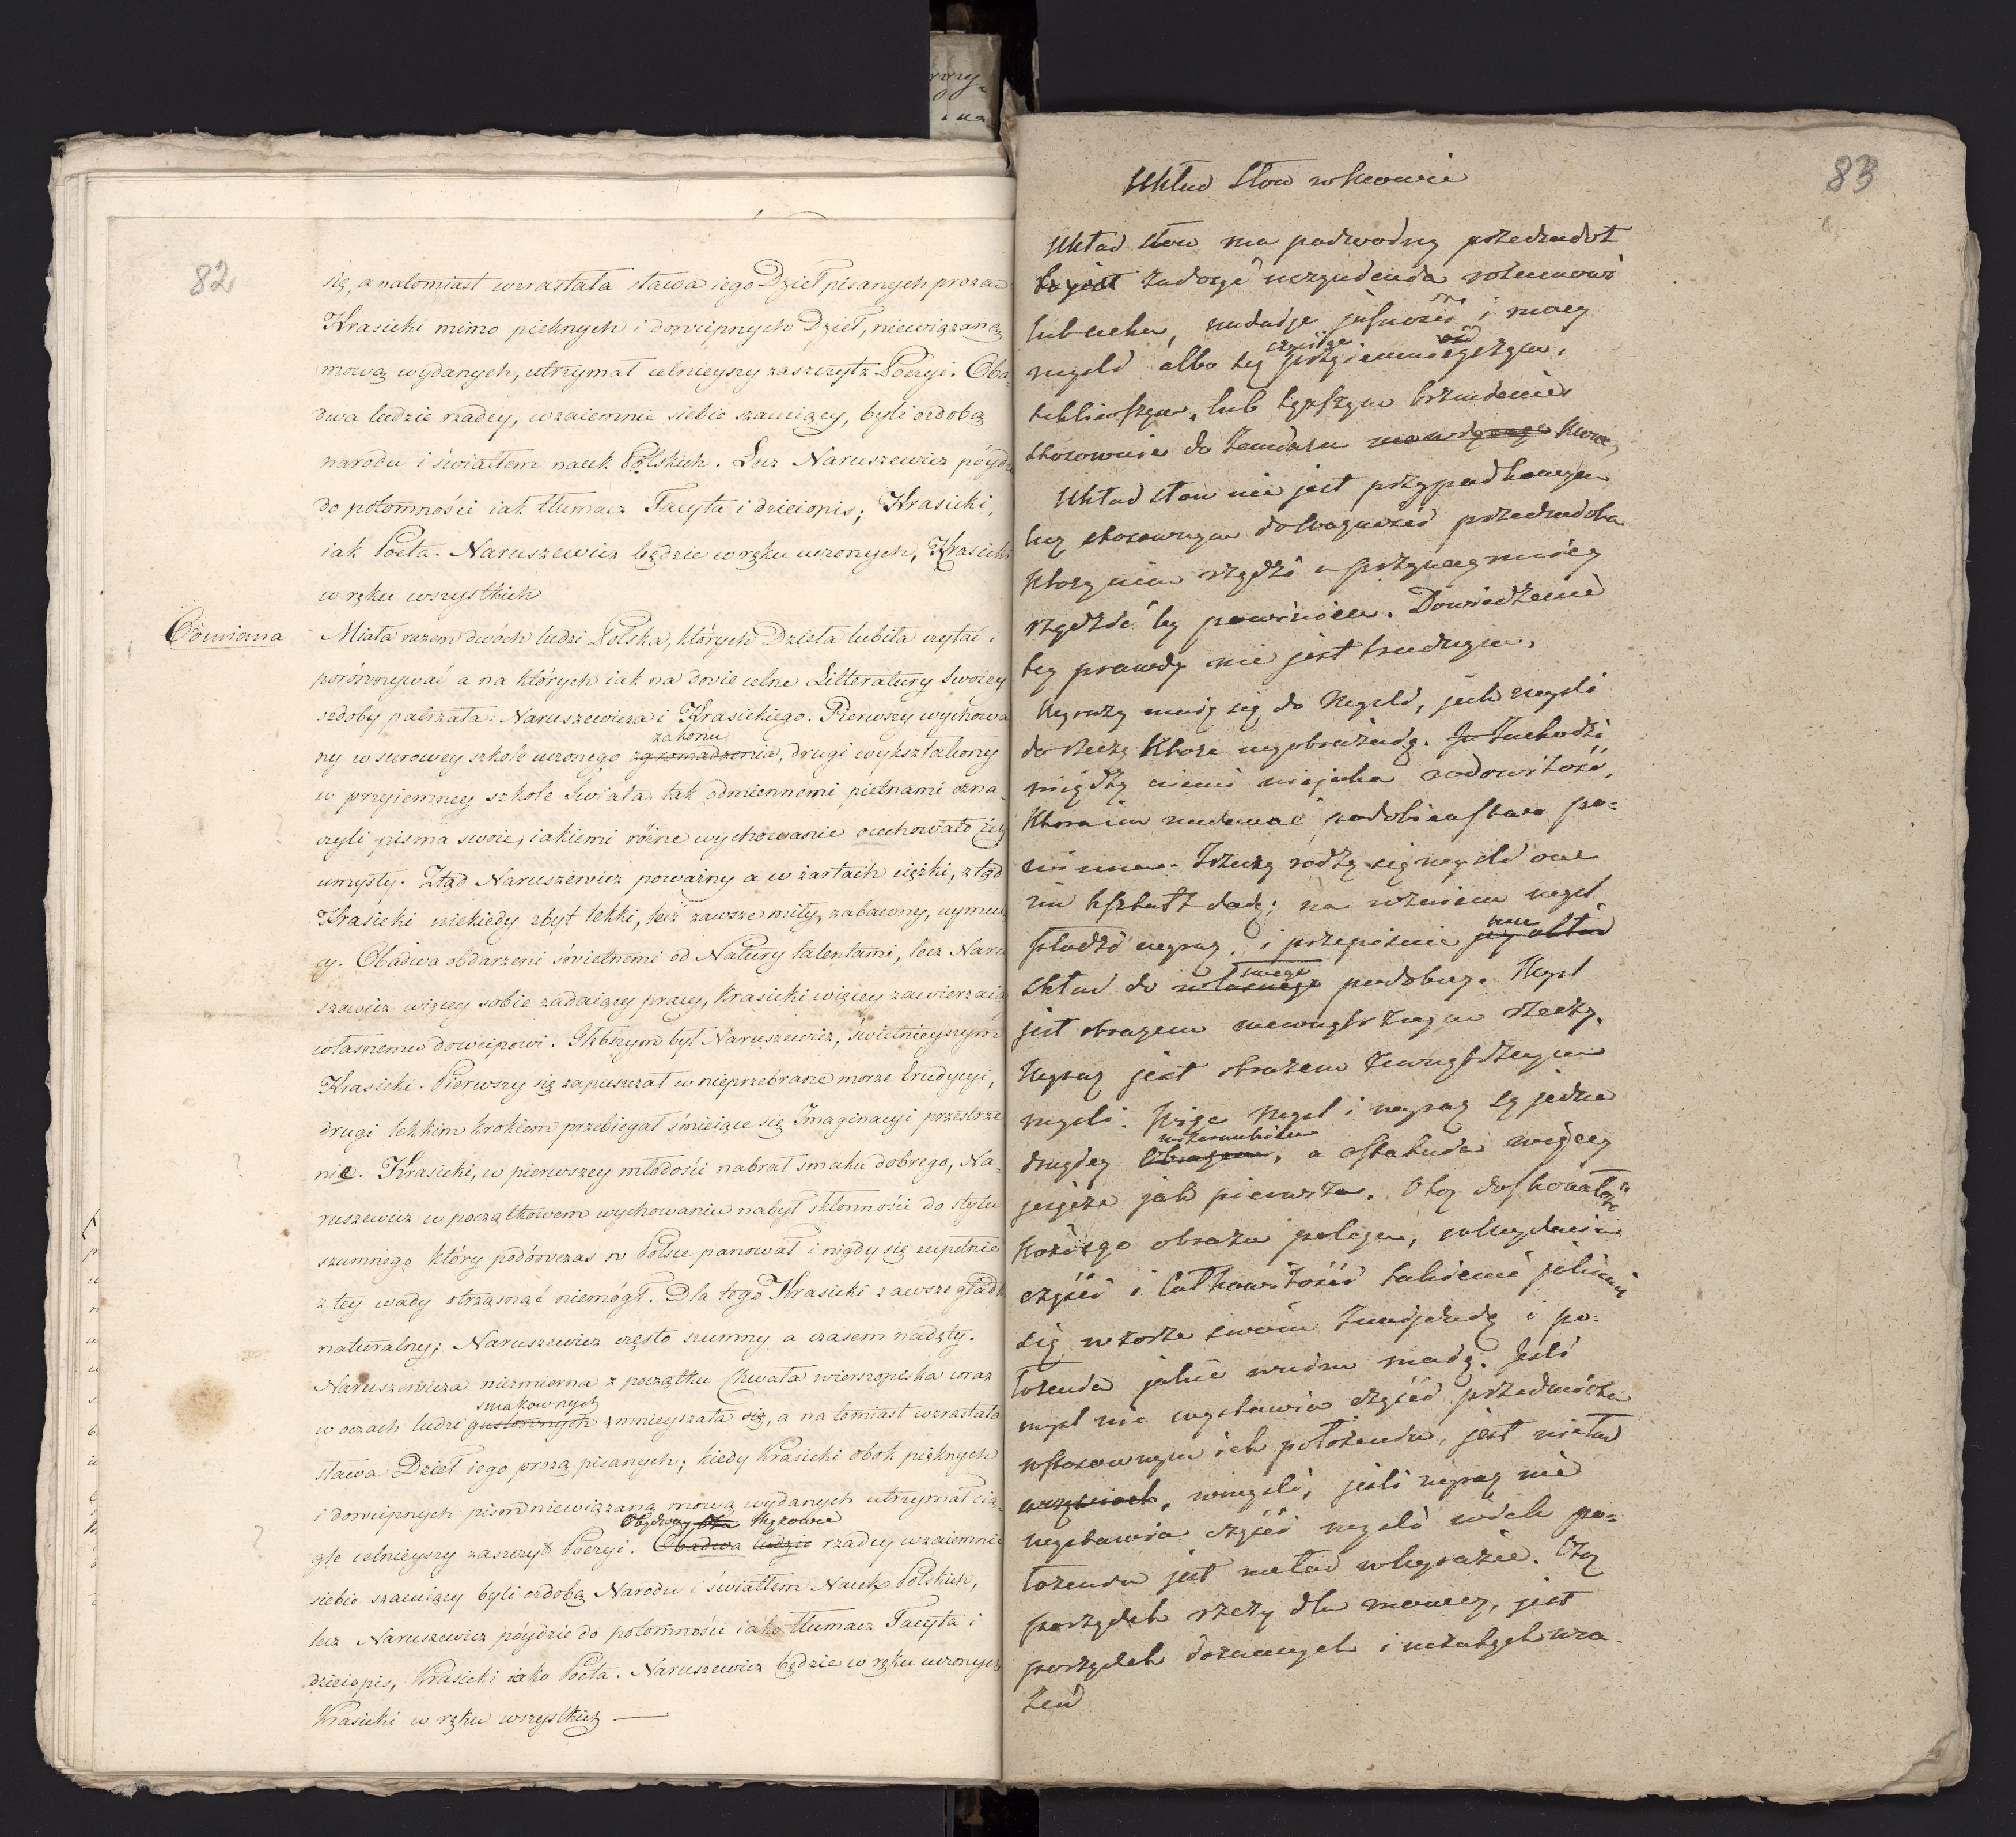 82
się, a natomiast wzrastała sława iego Dzieł pisanych prozą
Krasicki mimo pięknych i dowcipnych Dzieł, niewiązaną
mową wydanych, utrzymał celnieyszy zaszczyt z Poezyi. Oba-
dwa ludzie rzadcy, wzaiemnie siebie szanuiący, byli ozdobą
narodu i światłem nauk Polskich. Lecz Naruszewicz póydzie
do potomności iak tłumacz Tacyta i dzieiopis; Krasicki,
iak Poeta. Naruszewicz będzie w ręku uczonych, Krasicki
w ręku wszystkich
Odmiana
Miała razem dwóch ludzi Polska, których Dzieła lubiła czytać i
porównywać a na których iak na dwie celne Litteratury swoiey
ozdoby patrzała: Naruszewicza i Krasickiego. Pierwszy wychowa
zakonu
ny w surowey szkole uczonego zgromadzenia, drugi wykształcony
w przyiemney szkole świata, tak odmiennemi piętnami ozna-
czyli pisma swoie, iakiemi różne wychowanie ocechowało ich
umysły. Ztąd Naruszewicz poważny a w żartach ciężki, ztąd
Krasicki niekiedy zbyt lekki, lecz zawsze miły, zabawny, uymuią
cy. Obadwa obdarzeni świetnemi od Natury talentami, lecz Naru
szewicz więcey sobie zadaiący pracy, Krasicki więcey zawierzaią
własnemu dowcipowi. Głębszym był Naruszewicz, świetnieyszym
Krasicki. Pierwszy się zapuszczał w nieprzebrane morze Erudycyi,
drugi lekkim krokiem przebiegał śmieiące się Imaginacyi przestrze
nie. Krasicki, w pierwszey młodości nabrał smaku dobrego, Na-
ruszewicz w początkowem wychowaniu nabył skłonności do stylu
szumnego który podówczas w Polsce panował i nigdy się zupełnie
z tey wady otrząsnąć niemógł. Dla tego Krasicki zawsze gładki
naturalny; Naruszewicz często szumny a czasem nadęty.
Naruszewicza niezmierna z początku Chwała wierszopiska coraz
smakownych
w oczach ludzi gustownych zmnieyszała się, a natomiast wzrastała
sława Dzieł iego prozą pisanych; kiedy Krasicki obok pięknych
i dowcipnych pism niewiązaną mową wydanych utrzymał cią-
Obydway Mężowie
gle celnieyszy zaszczyt Poezyi. Obadwa ludzie rzadcy wzaiemnie
siebie szanuiący byli ozdobą Narodu i światłem Nauk Polskich,
lecz Naruszewicz póydzie do potomności iako tłumacz Tacyta i
dzieiopis, Krasicki iako Poeta. Naruszewicz będzie w ręku uczonych
Krasicki w ręku wszystkich —
83
Układ słow w mowie
Układ słow ma podwodny przedmiot
to jest rozumowi
lub ucha, nadaje jasności i mocy
myśli albo tez
lub tęższym brzmieniem
stosownie do zamiaru
Układ słow nie jest przypadkowym
lecz stosownym do przedmiotu
który nim rządzi a przynaymniey
rządzić by powinien. Dowiedzenie
tey prawdy nie jest trudnym.
Wyrazy maią się do Myśli, jak myśli
do rzeczy które wyobrażaią. Zachodzi
między niemi niejaka rodowitość,
która im nadawać podobieństwo po-
winna. Z rzeczy rodzą się myśli one
im kształt dadzą; na wzaiem myśl
płodzi wyraz, i przepisuie
swego
skład do własnego podobny. Myśl
jest obrazem wewnętrznym rzeczy,
Wyraz jest obrazem zewnętrznym
myśli. Więc Myśl i wyraz są jedne
wizerunkiem
drugiey Obrazem, a ostatnia więcey
jeszcze jak pierwsza. Otoż doskonałość
każdego obrazu polega, w oddaniu
części i całkowitości takiemi jakiemi
się w wzorze swoim znayduią i po-
łożenia jakie mają. Jeśli
myśl nie wystawia części przedmiotu
w stosownym ich położeniu, jest nieład
w myśli, jeśli wyraz nie
wystawia części myśli w ich po-
łożeniu jest nieład w wyrazie. Otoż
porządek rzeczy dla mowcy, jest
porządek doznanych i wra-
żeń